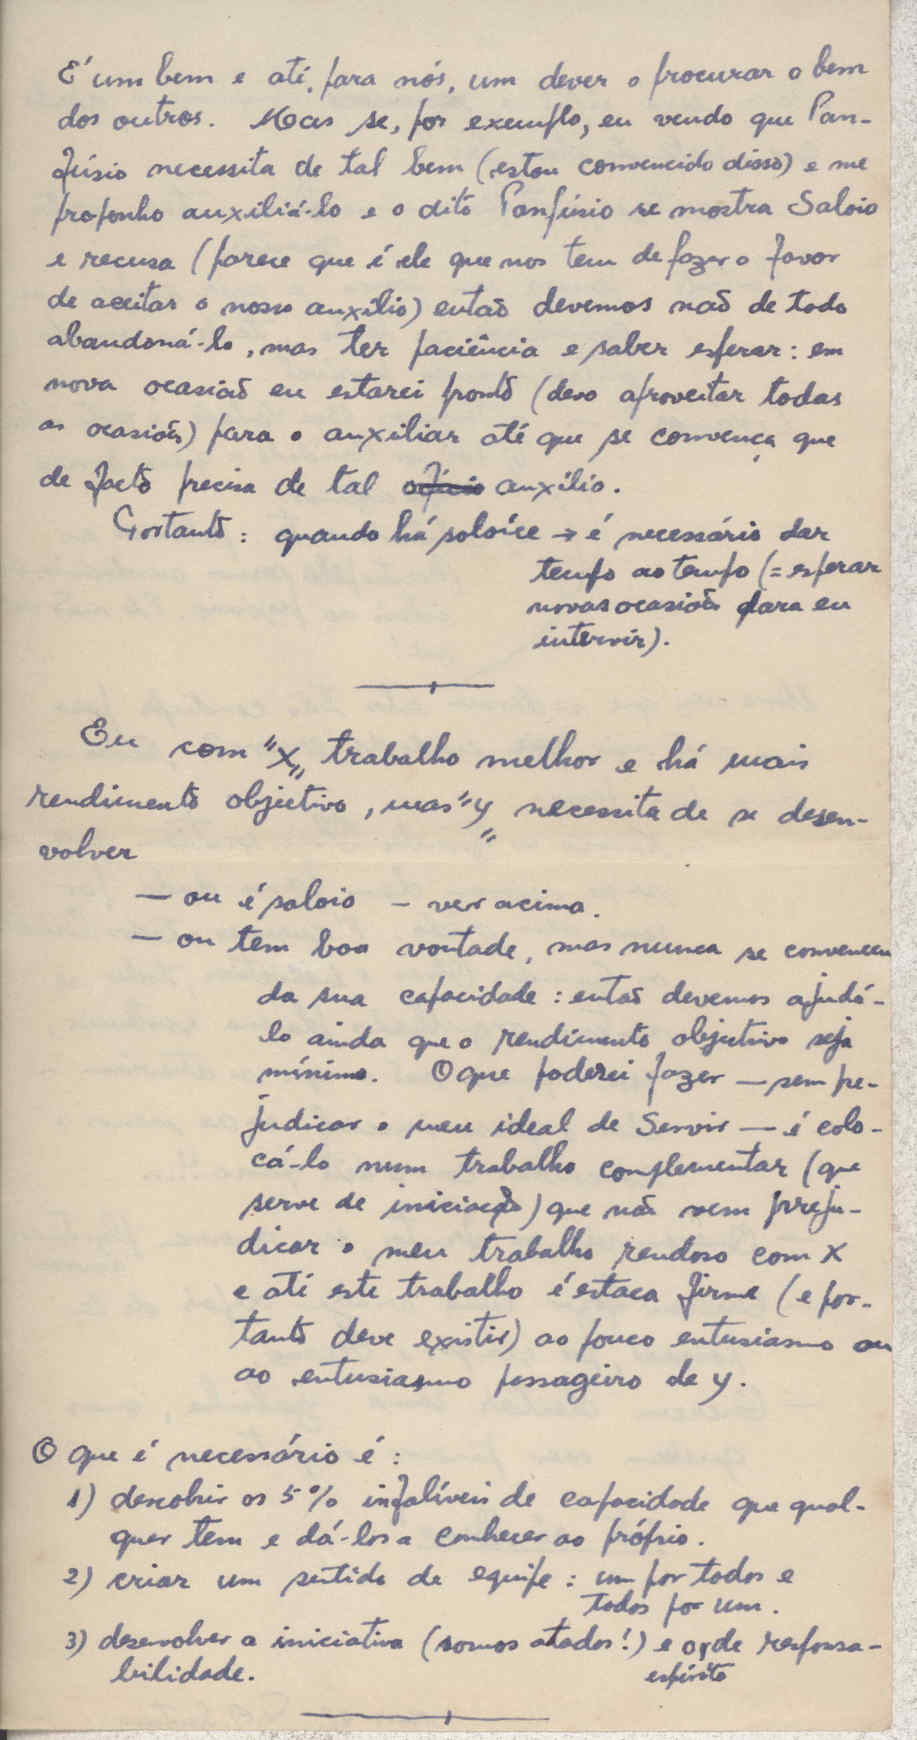 É um bem e até, para nós, um dever o procurar o bem
dos outros. Mas se, por exemplo, eu vendo que Pan-
fúsio necessita de tal bem (estou convencido disso) e me
proponho auxiliá-lo e o dito Panfúsio se mostra Saloio
e recusa (parece que é ele que nos tem de fazer o favor
de aceitar o nosso auxílio) então devemos não de todo
abandoná-lo, mas ter paciência e saber esperar: em
nova ocasião eu estarei pronto (devo aproveitar todas
as ocasiões) para o auxiliar até que se convença que
de facto precisa de tal auxílio.
Portanto: quando há saloíce → é necessário dar
tempo ao tempo (= esperar
novas ocasiões para eu
intervir).
Eu com "X" trabalho melhor e há mais
rendimento objectivo, mas "y" necessita de se desen-
volver
— ou é saloio - ver acima.
— ou tem boa vontade, mas nunca se convenceu
da sua capacidade: então devemos ajudá-
lo ainda que o rendimento objectivo seja
mínimo. O que poderei fazer — sem pre-
judicar o meu ideal de Servir — é colo-
cá-lo num trabalho complementar (que
serve de iniciação) que não vem preju-
dicar o meu trabalho rendoso com X
e até este trabalho é estaca firme (e por-
tanto deve existir) ao pouco entusiasmo ou
ao entusiasmo passageiro de y.
O que é necessário é:
1) descobrir os 5% infalíveis de capacidade que qual-
quer tem e dá-los a conhecer ao próprio.
2) criar um sentido de equipe: um por todos e
todos por um.
3) desenvolver a iniciativa (somos atados!) e o de responsa-
espírito
bilidade.